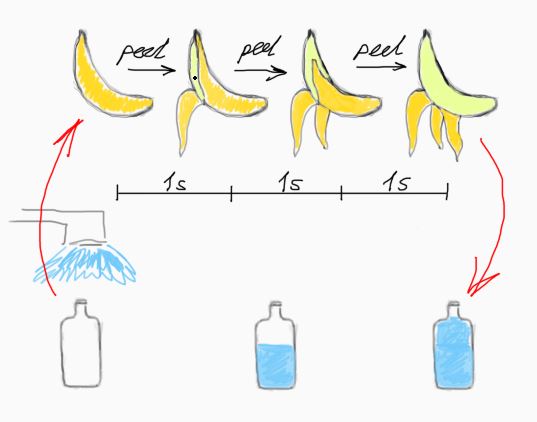 peel peel peel
1s 1s 1s